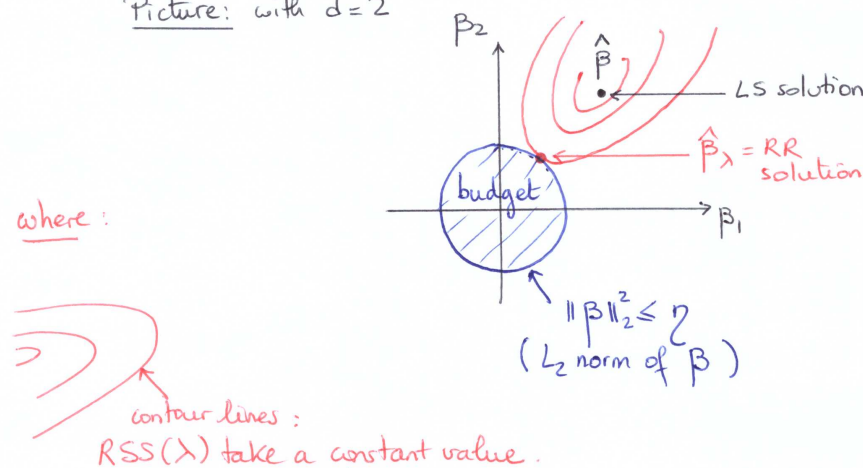 Picture: with d=2
β₂
β̂
LS solution
β̂_λ = RR
solution
budget
β₁
where:
‖β‖₂² ≤ η
(L₂ norm of β)
contour lines:
RSS(λ) take a constant value.